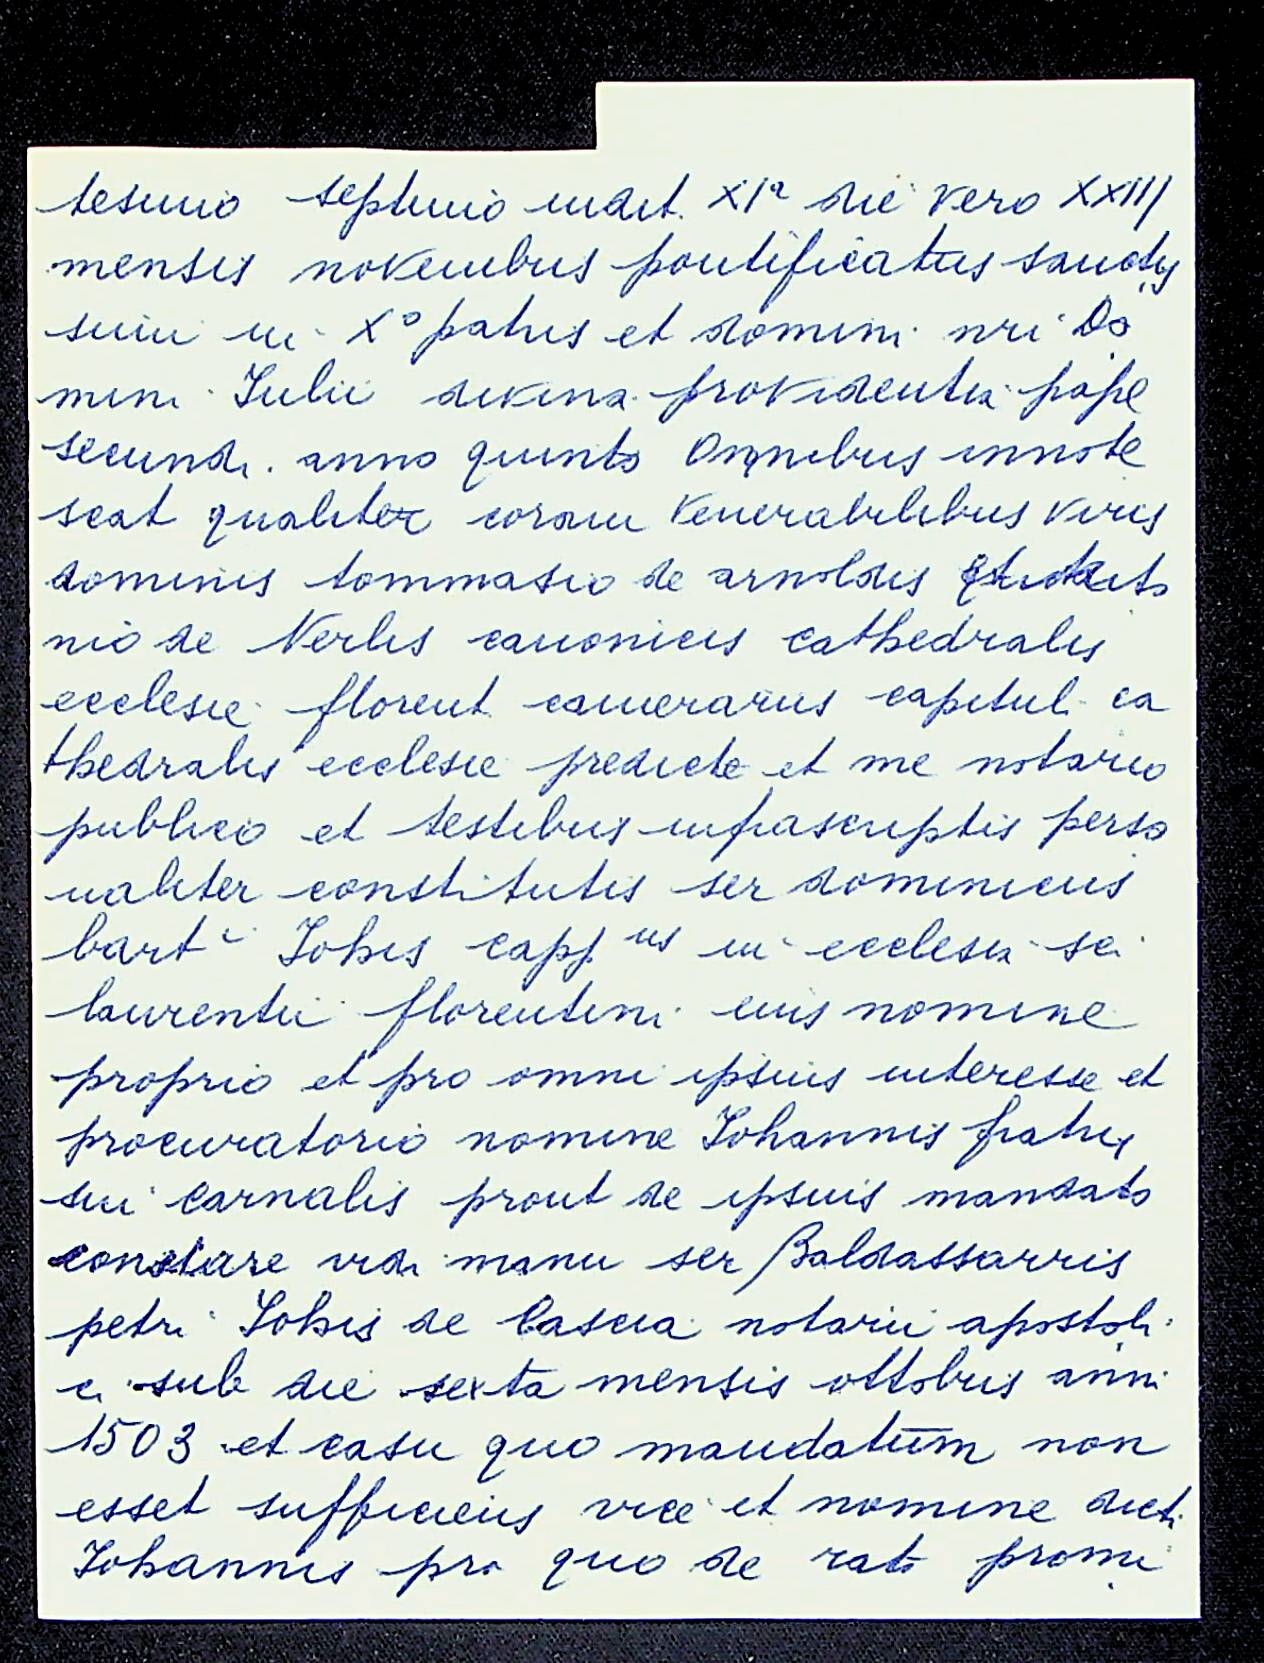 tesimo septimo indit. XIª die vero XXIII
mensis novembris pontificatus sanctis
simi in Xº patris et domini nri Do
mini Iulii divina providentia pape
secundi. anno quinto Omnibus innote
scat qualiter coram venerabilibus viris
dominis tommasio de arnoldis et
nio de Nerlis canonicis cathedralis
ecclesie florent. camerariis capituli ca
thedralis ecclesie predicte et me notario
publico et testibus infrascriptis perso
naliter constitutis ser dominicus
bart i Iohis capp us in ecclesia sci
laurentii florentini eius nomine
proprio et pro omni ipsius interesse et
procuratorio nomine Iohannis fratris
sui carnalis prout de ipsius mandato
constare vidi manu ser Baldassarris
petri Iohis de Cascia notarii apostoli
ci sub die sexta mensis ottobris anni
1503 et casu quo mandatum non
esset sufficiens vice et nomine dicti
Iohannis pro quo de rato promi